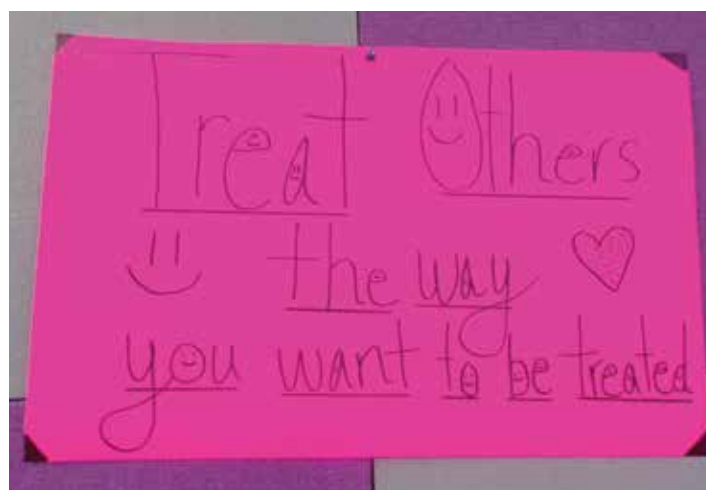 Treat Others
the way
you want to be treated